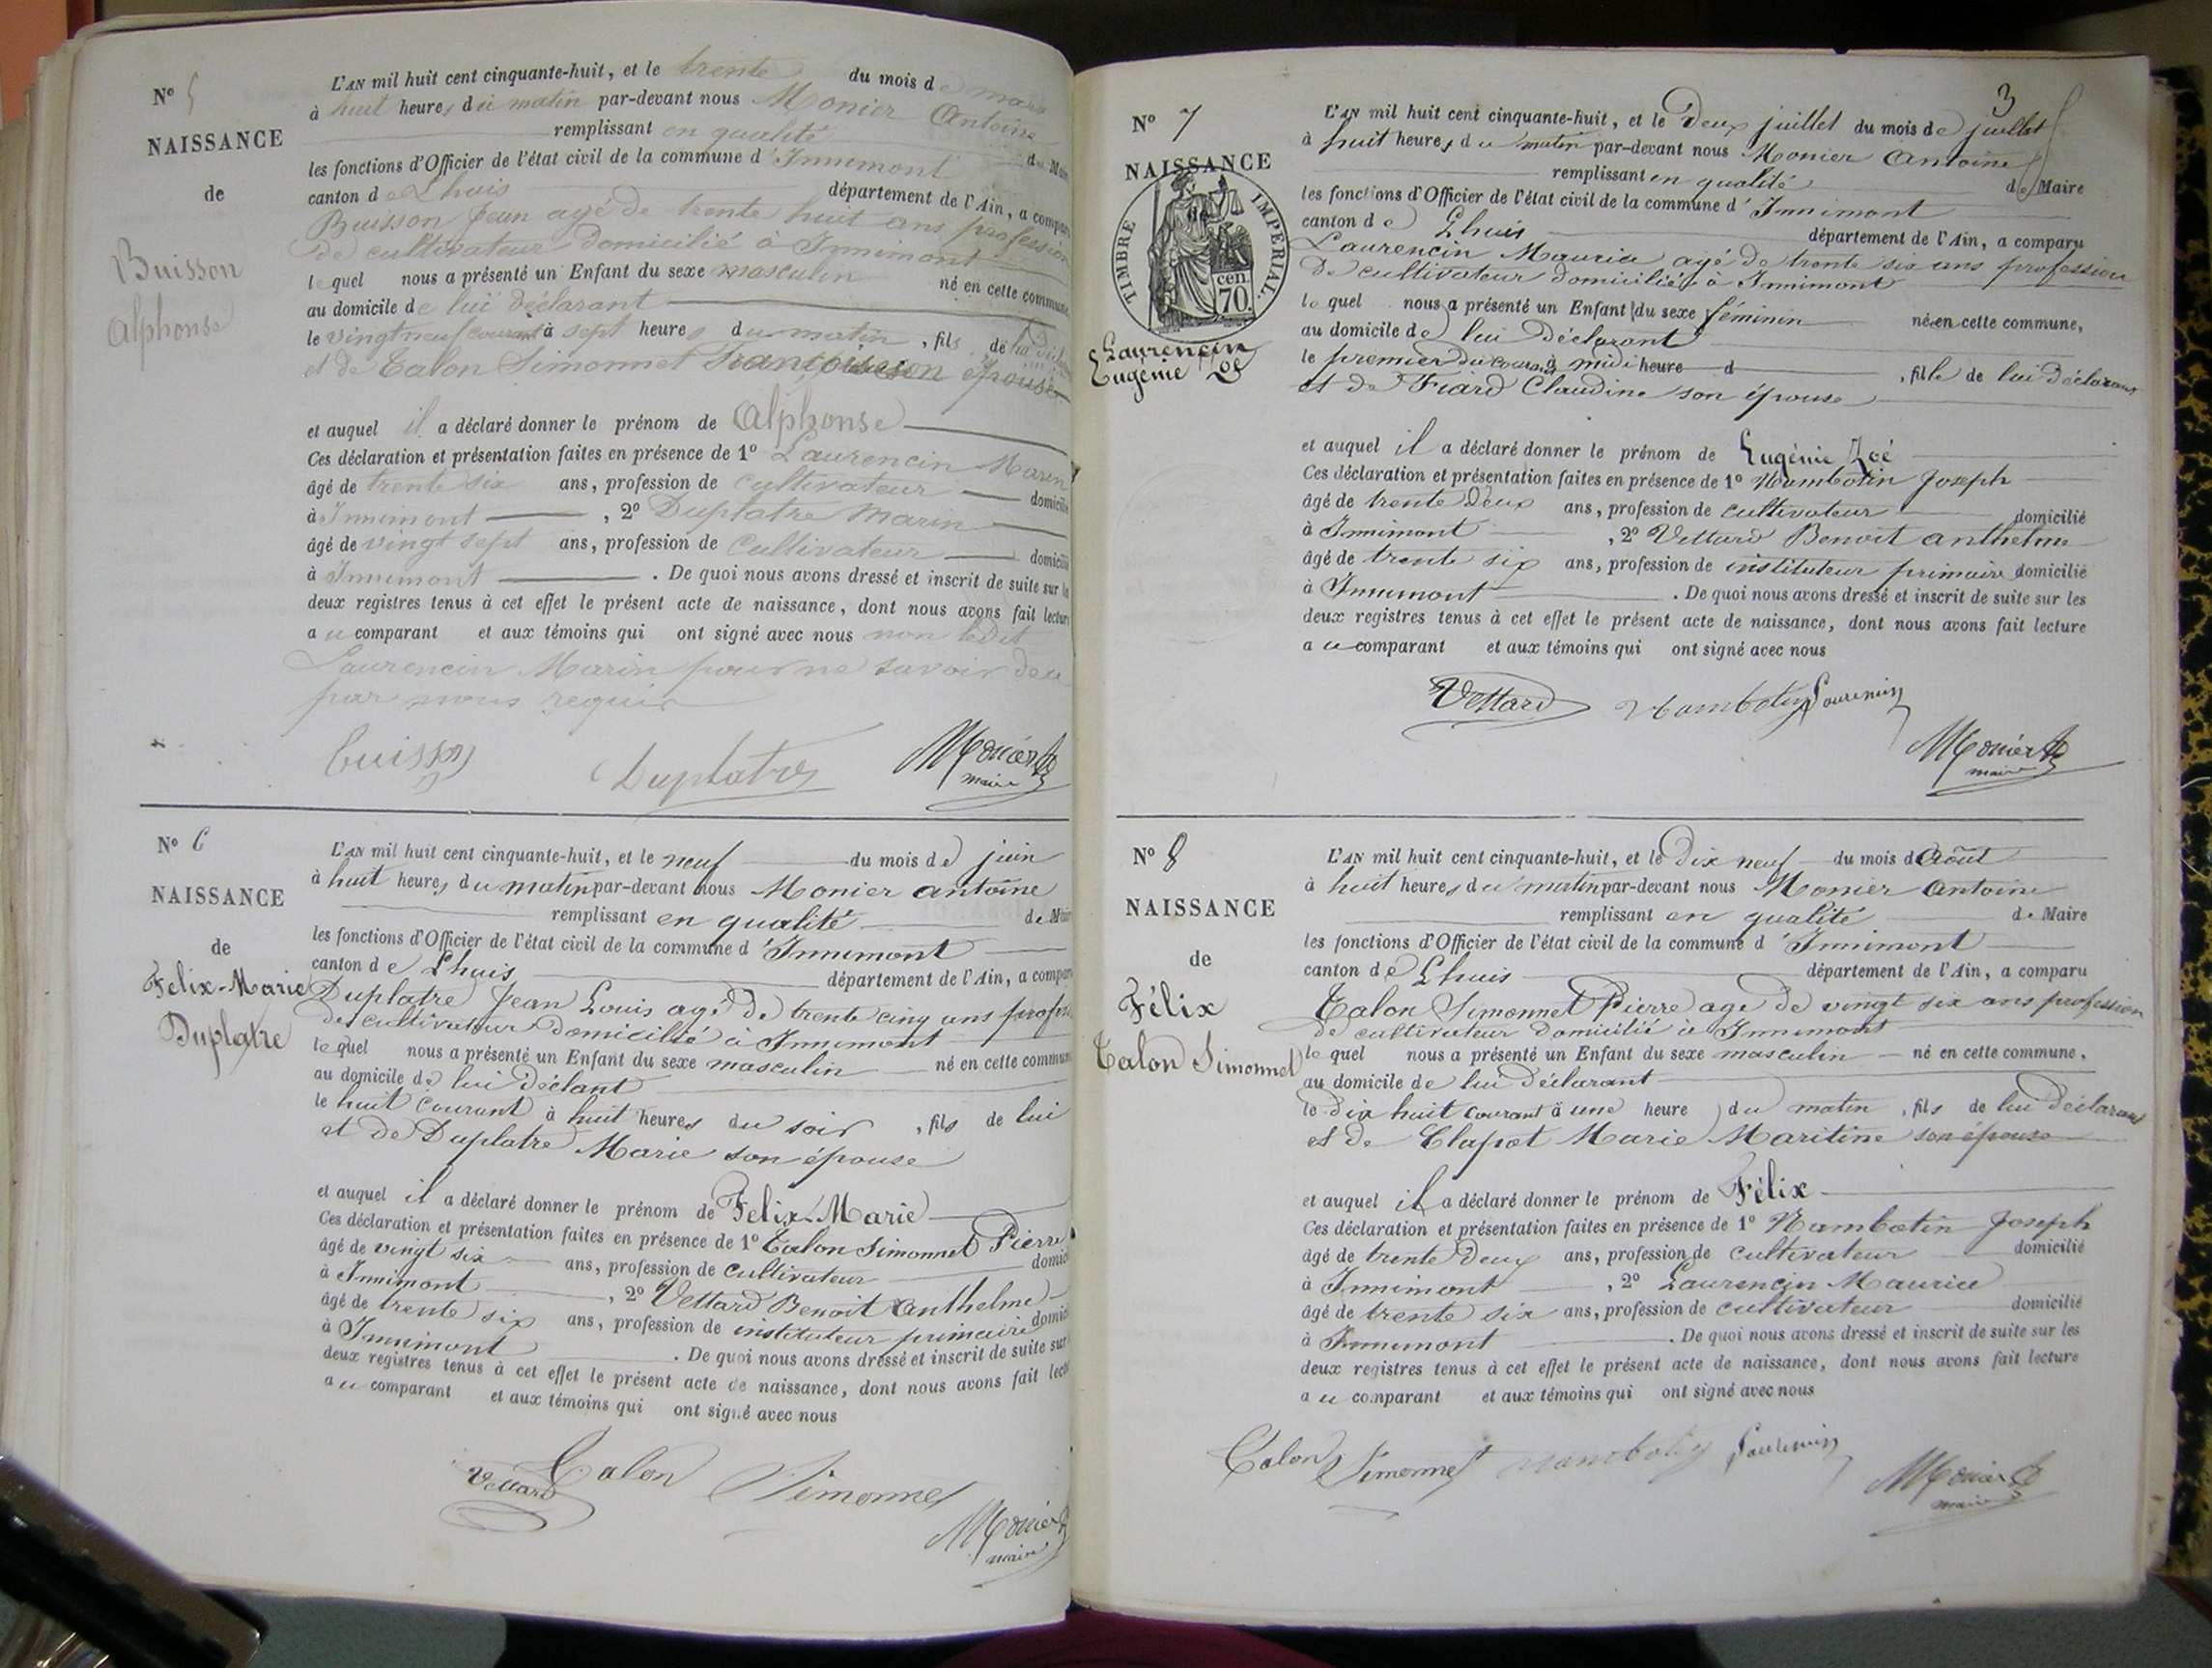 N° 5
NAISSANCE
de
Buisson
Alphonse
L'AN mil huit cent cinquante-huit, et le trente du mois de mars
à huit heures du matin par-devant nous Monier Antoine
remplissant en qualité de Maire
les fonctions d'Officier de l'état civil de la commune d'Innimont
canton de Lhuis département de l'Ain, a comparu
Buisson Jean agé de trente huit ans profession
de cultivateur domicilié à Innimont
lequel nous a présenté un Enfant du sexe masculin né en cette commune
au domicile de lui déclarant
le vingt neuf courant à sept heures du matin, fils de lui
et de Talon Simonnet Françoise son épouse
et auquel il a déclaré donner le prénom de Alphonse
Ces déclaration et présentation faites en présence de 1° Laurencin Marin
âgé de trente six ans, profession de cultivateur domicilié
à Innimont, 2° Duplatre Marin
âgé de vingt sept ans, profession de cultivateur domicilié
à Innimont. De quoi nous avons dressé et inscrit de suite sur les
deux registres tenus à cet effet le présent acte de naissance, dont nous avons fait lecture
au comparant et aux témoins qui ont signé avec nous non ledit
Laurencin Marin pour ne savoir de ce
par nous requis
Buisson Duplatre Monier
maire
N° 6
NAISSANCE
de
Felix-Marie
Duplatre
L'AN mil huit cent cinquante-huit, et le neuf du mois de juin
à huit heures du matin par-devant nous Monier antoine
remplissant en qualité de Maire
les fonctions d'Officier de l'état civil de la commune d'Innimont
canton de Lhuis département de l'Ain, a comparu
Duplatre Jean Louis agé de trente cinq ans profess
de cultivateur domicilié à Innimont
lequel nous a présenté un Enfant du sexe masculin né en cette commune
au domicile de lui déclant
le huit courant à huit heures du soir, fils de lui
et de Duplatre Marie son épouse
et auquel il a déclaré donner le prénom de Felix-Marie
Ces déclaration et présentation faites en présence de 1° Talon Simonnet Pierre
âgé de vingt six ans, profession de cultivateur domici
à Innimont, 2° Vettard Benoit anthelme
âgé de trente six ans, profession de instituteur primaire domici
à Innimont. De quoi nous avons dressé et inscrit de suite sur
deux registres tenus à cet effet le présent acte de naissance, dont nous avons fait lect
au comparant et aux témoins qui ont signé avec nous
Vettard Talon Simonnet
Monier
maire
3
N° 7
NAISSANCE
TIMBRE IMPERIAL
70 cen.
Laurencin
Eugénie Zoé
L'AN mil huit cent cinquante-huit, et le deux juillet du mois de juillet
à huit heures du matin par-devant nous Monier Antoine
remplissant en qualité de Maire
les fonctions d'Officier de l'état civil de la commune d'Innimont
canton de Lhuis département de l'Ain, a comparu
Laurencin Maurice agé de trente six ans profession
de cultivateur domicilié à Innimont
lequel nous a présenté un Enfant du sexe féminin né en cette commune,
au domicile de lui déclarant
le premier du courant à midi heure d, fille de lui déclarant
et de Fiard Claudine son épouse
et auquel il a déclaré donner le prénom de Eugénie Zoé
Ces déclaration et présentation faites en présence de 1° Nambotin Joseph
âgé de trente deux ans, profession de cultivateur domicilié
à Innimont, 2° Vettard Benoit anthelme
âgé de trente six ans, profession de instituteur primaire domicilié
à Innimont. De quoi nous avons dressé et inscrit de suite sur les
deux registres tenus à cet effet le présent acte de naissance, dont nous avons fait lecture
au comparant et aux témoins qui ont signé avec nous
Vettard Nambotin Laurencin
Monier
maire
N° 8
NAISSANCE
de
Félix
Talon Simonnet
L'AN mil huit cent cinquante-huit, et le dix neuf du mois d'Août
à huit heures du matin par-devant nous Monier Antoine
remplissant en qualité de Maire
les fonctions d'Officier de l'état civil de la commune d'Innimont
canton de Lhuis département de l'Ain, a comparu
Talon Simonnet Pierre age de vingt six ans profession
de cultivateur domicilié à Innimont
lequel nous a présenté un Enfant du sexe masculin né en cette commune,
au domicile de lui déclarant
le dix huit courant à une heure du matin, fils de lui déclarant
et de Clapot Marie Maritine son épouse
et auquel il a déclaré donner le prénom de Félix
Ces déclaration et présentation faites en présence de 1° Nambotin Joseph
âgé de trente deux ans, profession de cultivateur domicilié
à Innimont, 2° Laurencin Maurice
âgé de trente six ans, profession de cultivateur domicilié
à Innimont. De quoi nous avons dressé et inscrit de suite sur les
deux registres tenus à cet effet le présent acte de naissance, dont nous avons fait lecture
au comparant et aux témoins qui ont signé avec nous
Talon Simonnet Nambotin Laurencin
Monier
maire